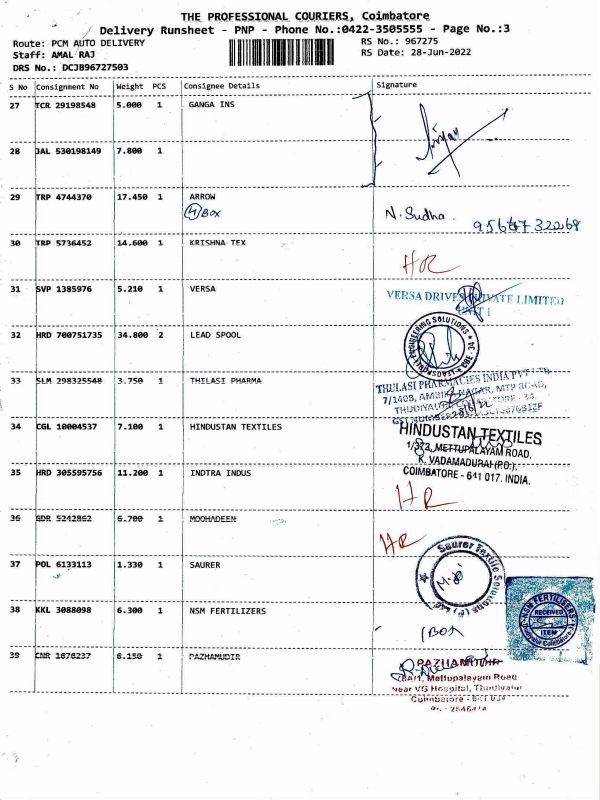 THE PROFESSIONAL COURIERS, Coimbatore
Delivery Runsheet - PNP - Phone No.:0422-3505555 - Page No.:3
Route: PCM AUTO DELIVERY
RS No.: 967275
Staff: AMAL RAJ
RS Date: 28-Jun-2022
DRS No.: DCJB96727503
S No Consignment No Weight PCS Consignee Details Signature
27 TCR 29198548 5.000 1 GANGA INS
28 JAL 530198149 7.800 1
29 TRP 4744370 17.450 1 ARROW
4 BOX
N. Sudha
30 TRP 5736452 14.600 1 KRISHNA TEX
HR
31 SVP 1385976 5.210 1 VERSA
VERSA DRIVES PRIVATE LIMITED
UNIT 1
32 HRD 700751735 34.800 2 LEAD SPOOL
ENGINEERING SOLUTIONS
33 SLM 298325548 3.750 1 THILASI PHARMA
THULASI PHARMACIES INDIA PVT LTD
34 CGL 10004537 7.100 1 HINDUSTAN TEXTILES
HINDUSTAN TEXTILES
1/373, METTUPALAYAM ROAD,
K. VADAMADURAI (P.O.),
COIMBATORE - 641 017. INDIA.
35 HRD 305595756 11.200 1 INDTRA INDUS
HR
36 GDR 5242862 6.700 1 MOOHADEEN
HR
37 POL 6133113 1.330 1 SAURER
Saurer Textile Solutions
38 KKL 3088098 6.300 1 NSM FERTILIZERS
1 BOX
NSM FERTILISERS
RECEIVED
ITEM
39 CNR 1676237 6.150 1 PAZHAMUDIR
PAZHAMUDIR
Mettupalayam Road
Near VG Hospital, Thudiyalur